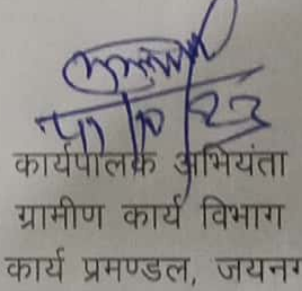 कार्यपालक अभियंता
ग्रामीण कार्य विभाग
कार्य प्रमण्डल, जयनग